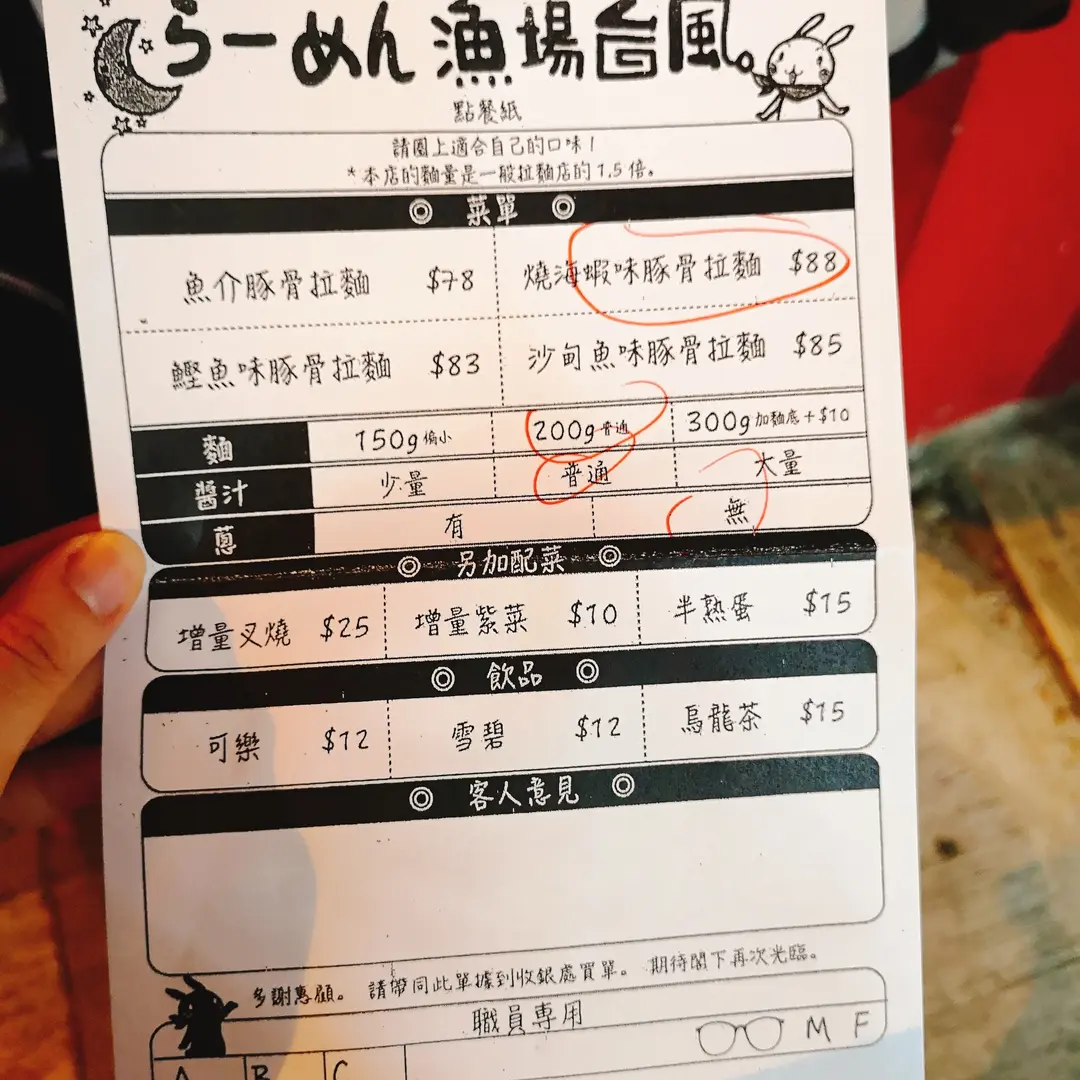 らーめん 漁場台風。
點餐紙
請圈上適合自己的口味!
*本店的麵量是一般拉麵店的1.5倍。
◎ 菜單 ◎
魚介豚骨拉麵 $78 燒海蝦味豚骨拉麵 $88
鰹魚味豚骨拉麵 $83 沙甸魚味豚骨拉麵 $85
麵 150g偏小 200g普通 300g加麵底+$10
醬汁 少量 普通 大量
蔥 有 無
◎ 另加配菜 ◎
增量叉燒 $25 增量紫菜 $10 半熟蛋 $15
◎ 飲品 ◎
可樂 $12 雪碧 $12 烏龍茶 $15
◎ 客人意見 ◎
多謝惠顧。 請帶同此單據到收銀處買單。 期待閣下再次光臨。
職員專用
M F
A B C